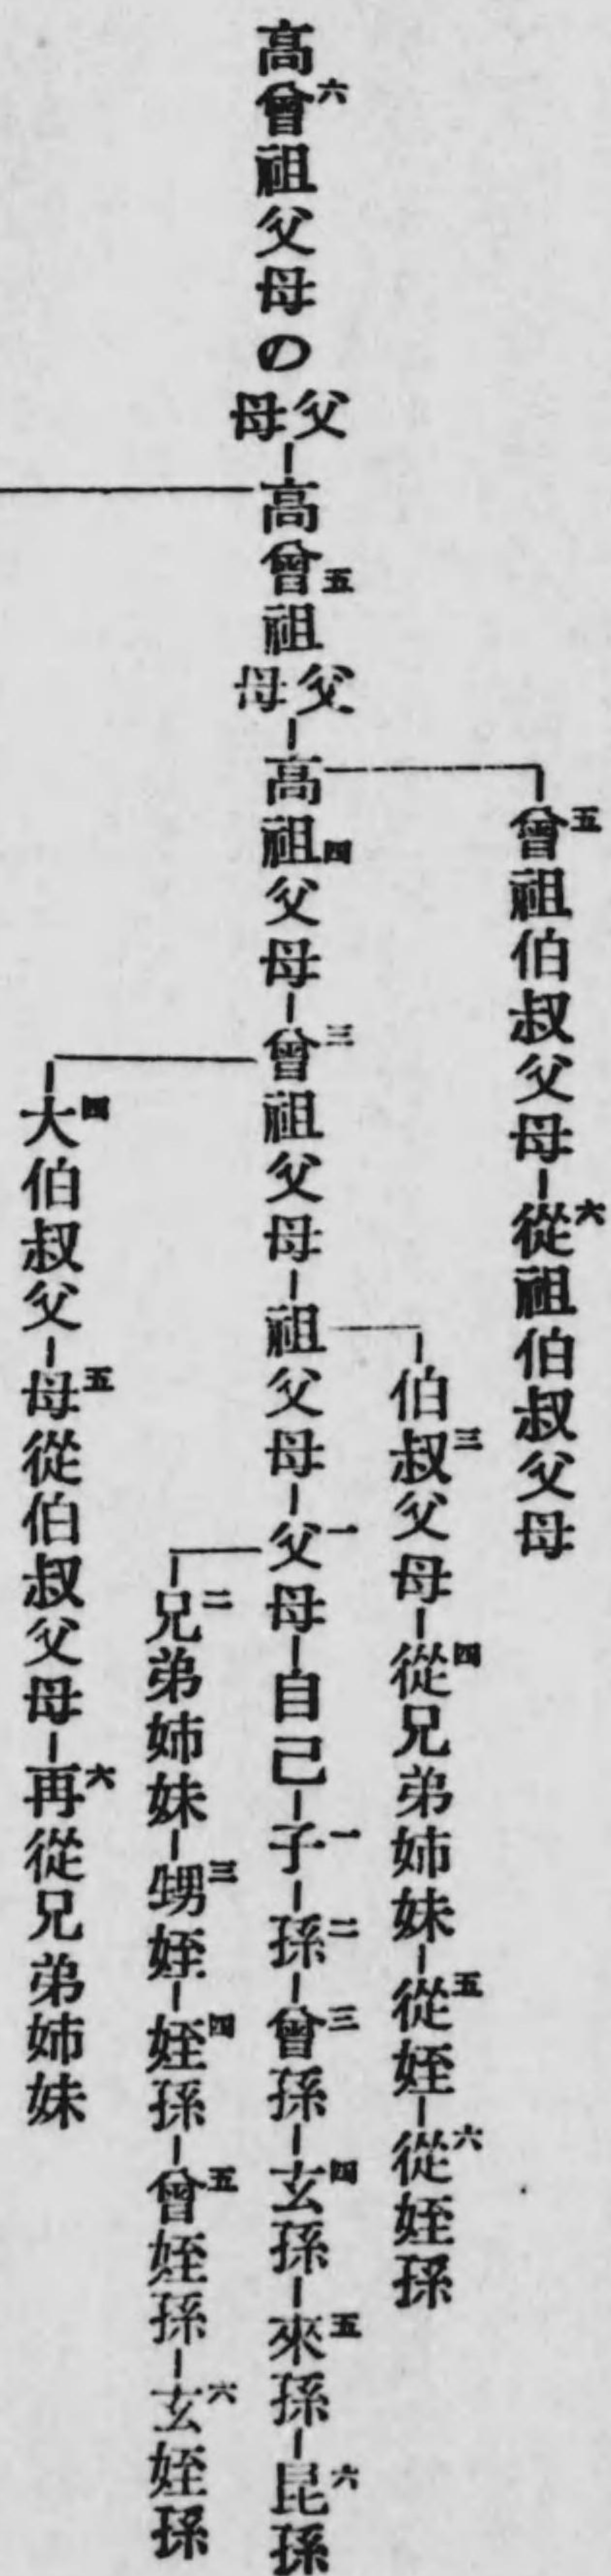 曾五祖伯叔父母―從六祖伯叔父母
伯叔三父母―從四兄弟姉妹―從五姪―從六姪孫
高曾六祖父母の父母―高曾五祖父母―高祖四父母―曾三祖父母―祖父母―父一母―自己―子一―孫二―曾三孫―玄四孫―來五孫―昆六孫
兄二弟姉妹―甥三姪―姪四孫―曾五姪孫―玄六姪孫
大四伯叔父―母五從伯叔父母―再六從兄弟姉妹